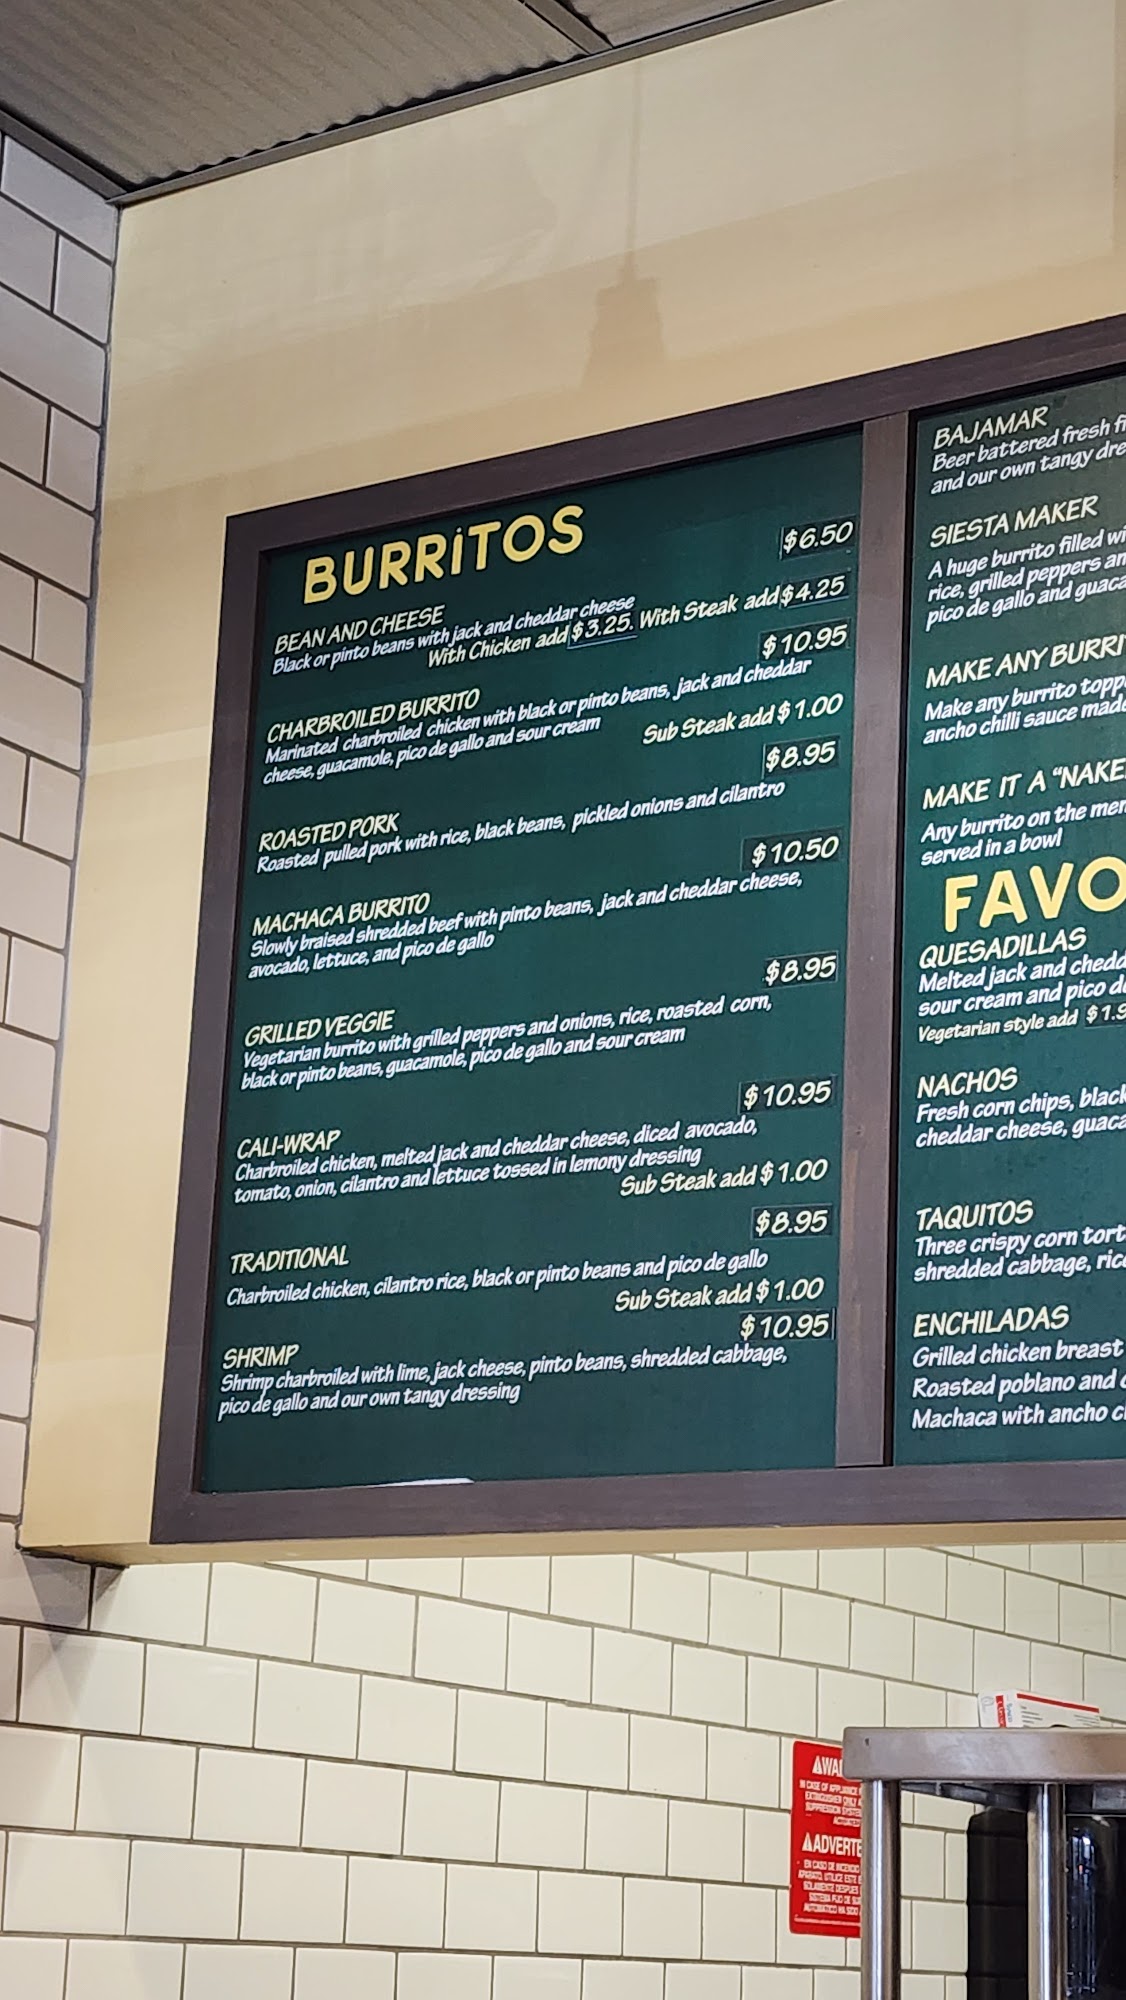 BURRiTOS
$6.50
BEAN AND CHEESE
Black or pinto beans with jack and cheddar cheese
With Chicken add $3.25. With Steak add $4.25
$10.95
CHARBROILED BURRITO
Marinated charbroiled chicken with black or pinto beans, jack and cheddar
cheese, guacamole, pico de gallo and sour cream
Sub Steak add $1.00
$8.95
ROASTED PORK
Roasted pulled pork with rice, black beans, pickled onions and cilantro
$10.50
MACHACA BURRITO
Slowly braised shredded beef with pinto beans, jack and cheddar cheese,
avocado, lettuce, and pico de gallo
$8.95
GRILLED VEGGIE
Vegetarian burrito with grilled peppers and onions, rice, roasted corn,
black or pinto beans, guacamole, pico de gallo and sour cream
$10.95
CALI-WRAP
Charbroiled chicken, melted jack and cheddar cheese, diced avocado,
tomato, onion, cilantro and lettuce tossed in lemony dressing
Sub Steak add $1.00
$8.95
TRADITIONAL
Charbroiled chicken, cilantro rice, black or pinto beans and pico de gallo
Sub Steak add $1.00
$10.95
SHRIMP
Shrimp charbroiled with lime, jack cheese, pinto beans, shredded cabbage,
pico de gallo and our own tangy dressing
BAJAMAR
Beer battered fresh
and our own tangy
SIESTA MAKER
A huge burrito filled
rice, grilled peppers
pico de gallo and
MAKE ANY
Make any burrito
ancho chilli sauce
MAKE IT A
Any burrito on the
served in a bowl
QUESADILLAS
Melted jack and
sour cream and pico
Vegetarian style add
NACHOS
Fresh corn chips,
cheddar cheese,
TAQUITOS
Three crispy corn
shredded cabbage,
ENCHILADAS
Grilled chicken breast
Roasted poblano and
Machaca with ancho